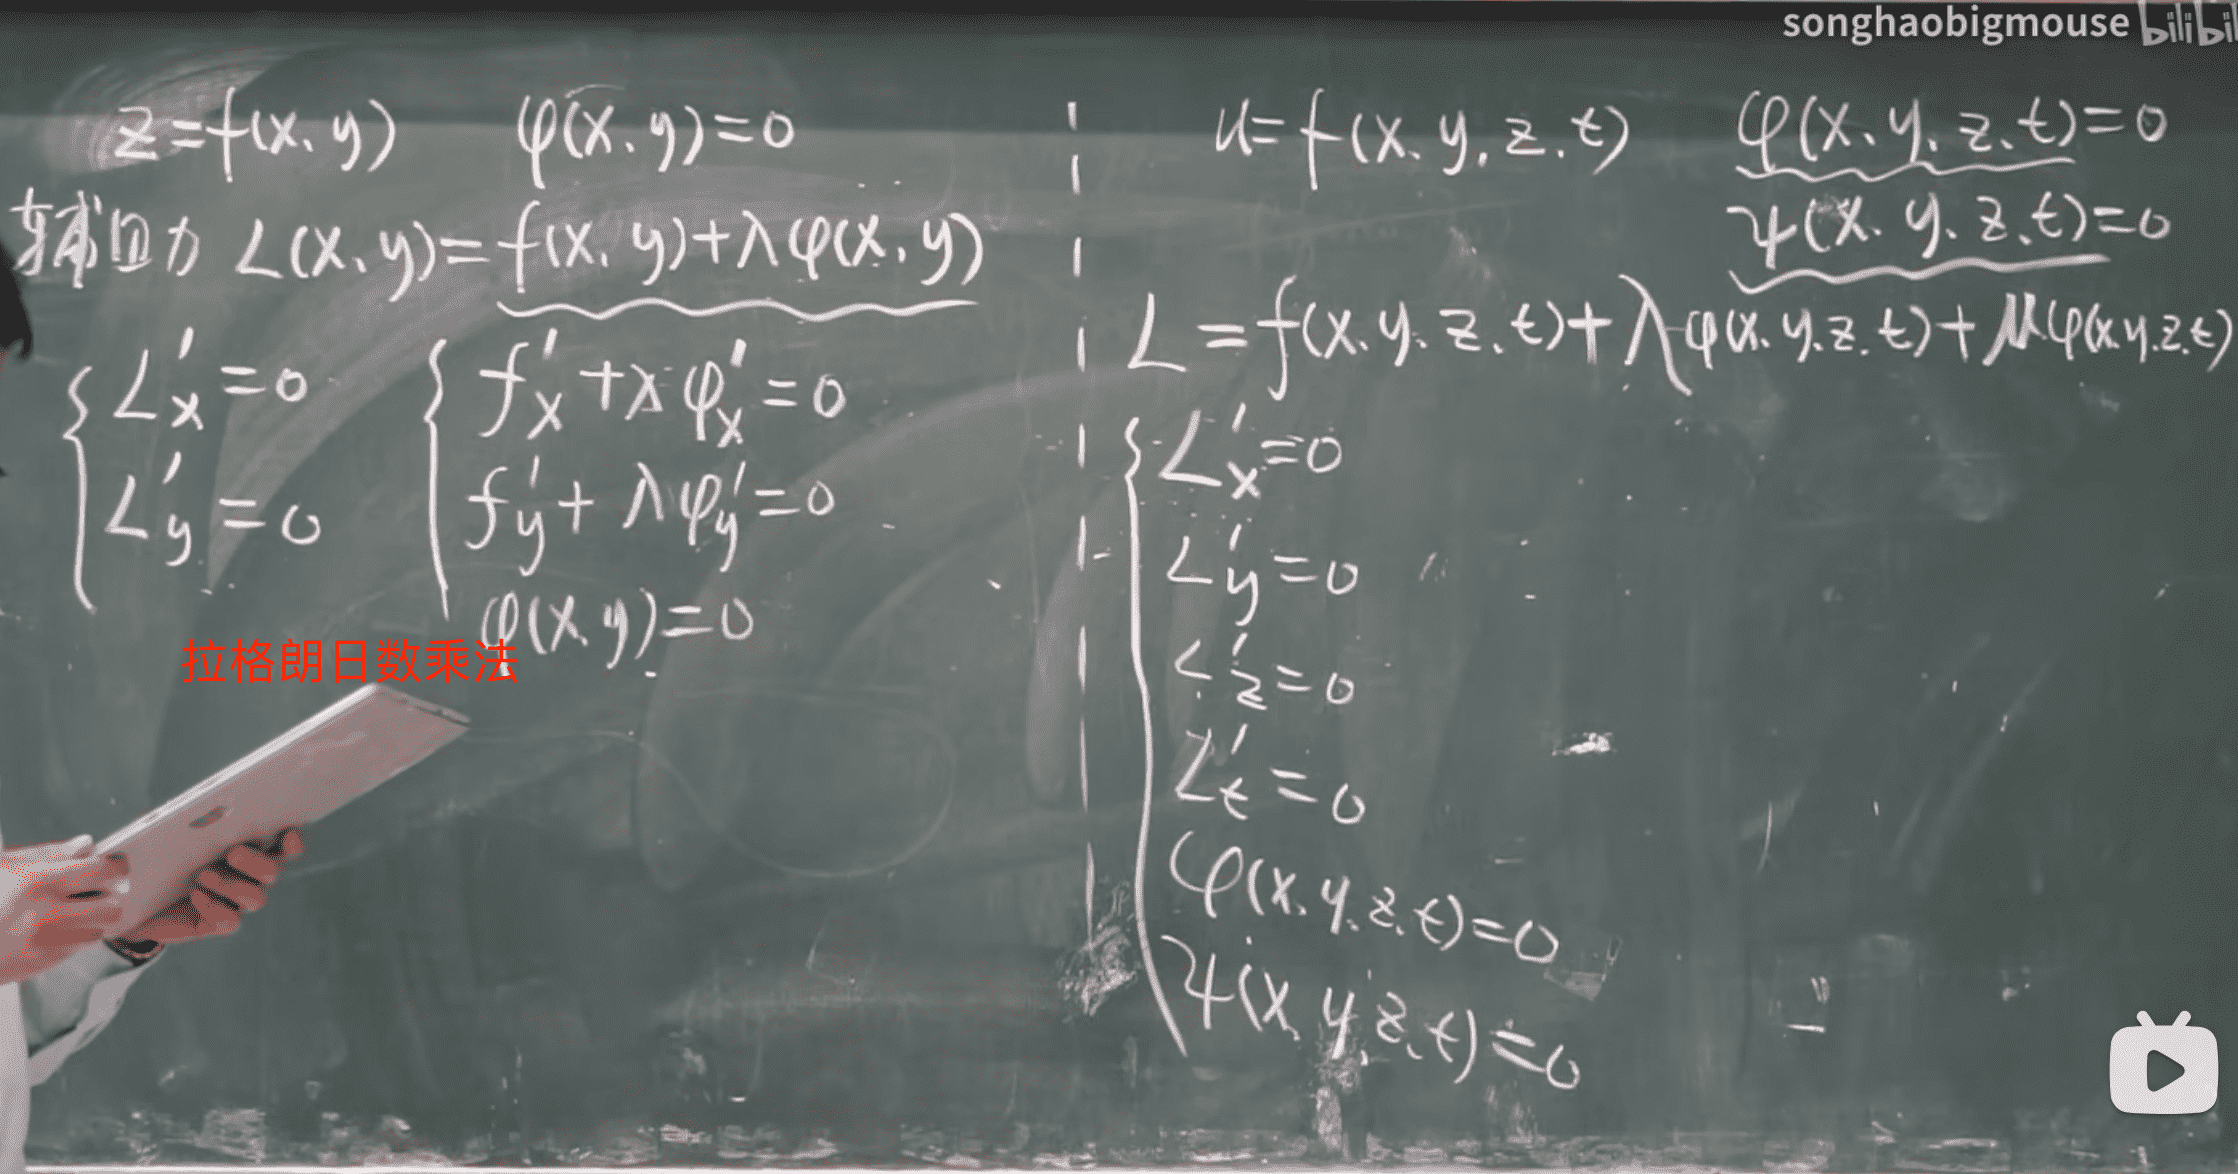 songhaobigmouse bilibili
z=f(x.y) φ(x.y)=0
辅助 L(x.y)=f(x.y)+λφ(x.y)
L'x=0
L'y=0
f'x+λφ'x=0
f'y+λφ'y=0
φ(x.y)=0
拉格朗日数乘法
u=f(x.y.z.t) φ(x.y.z.t)=0
ψ(x.y.z.t)=0
L=f(x.y.z.t)+λφ(x.y.z.t)+μφ(x.y.z.t)
L'x=0
L'y=0
L'z=0
L't=0
φ(x.y.z.t)=0
ψ(x.y.z.t)=0